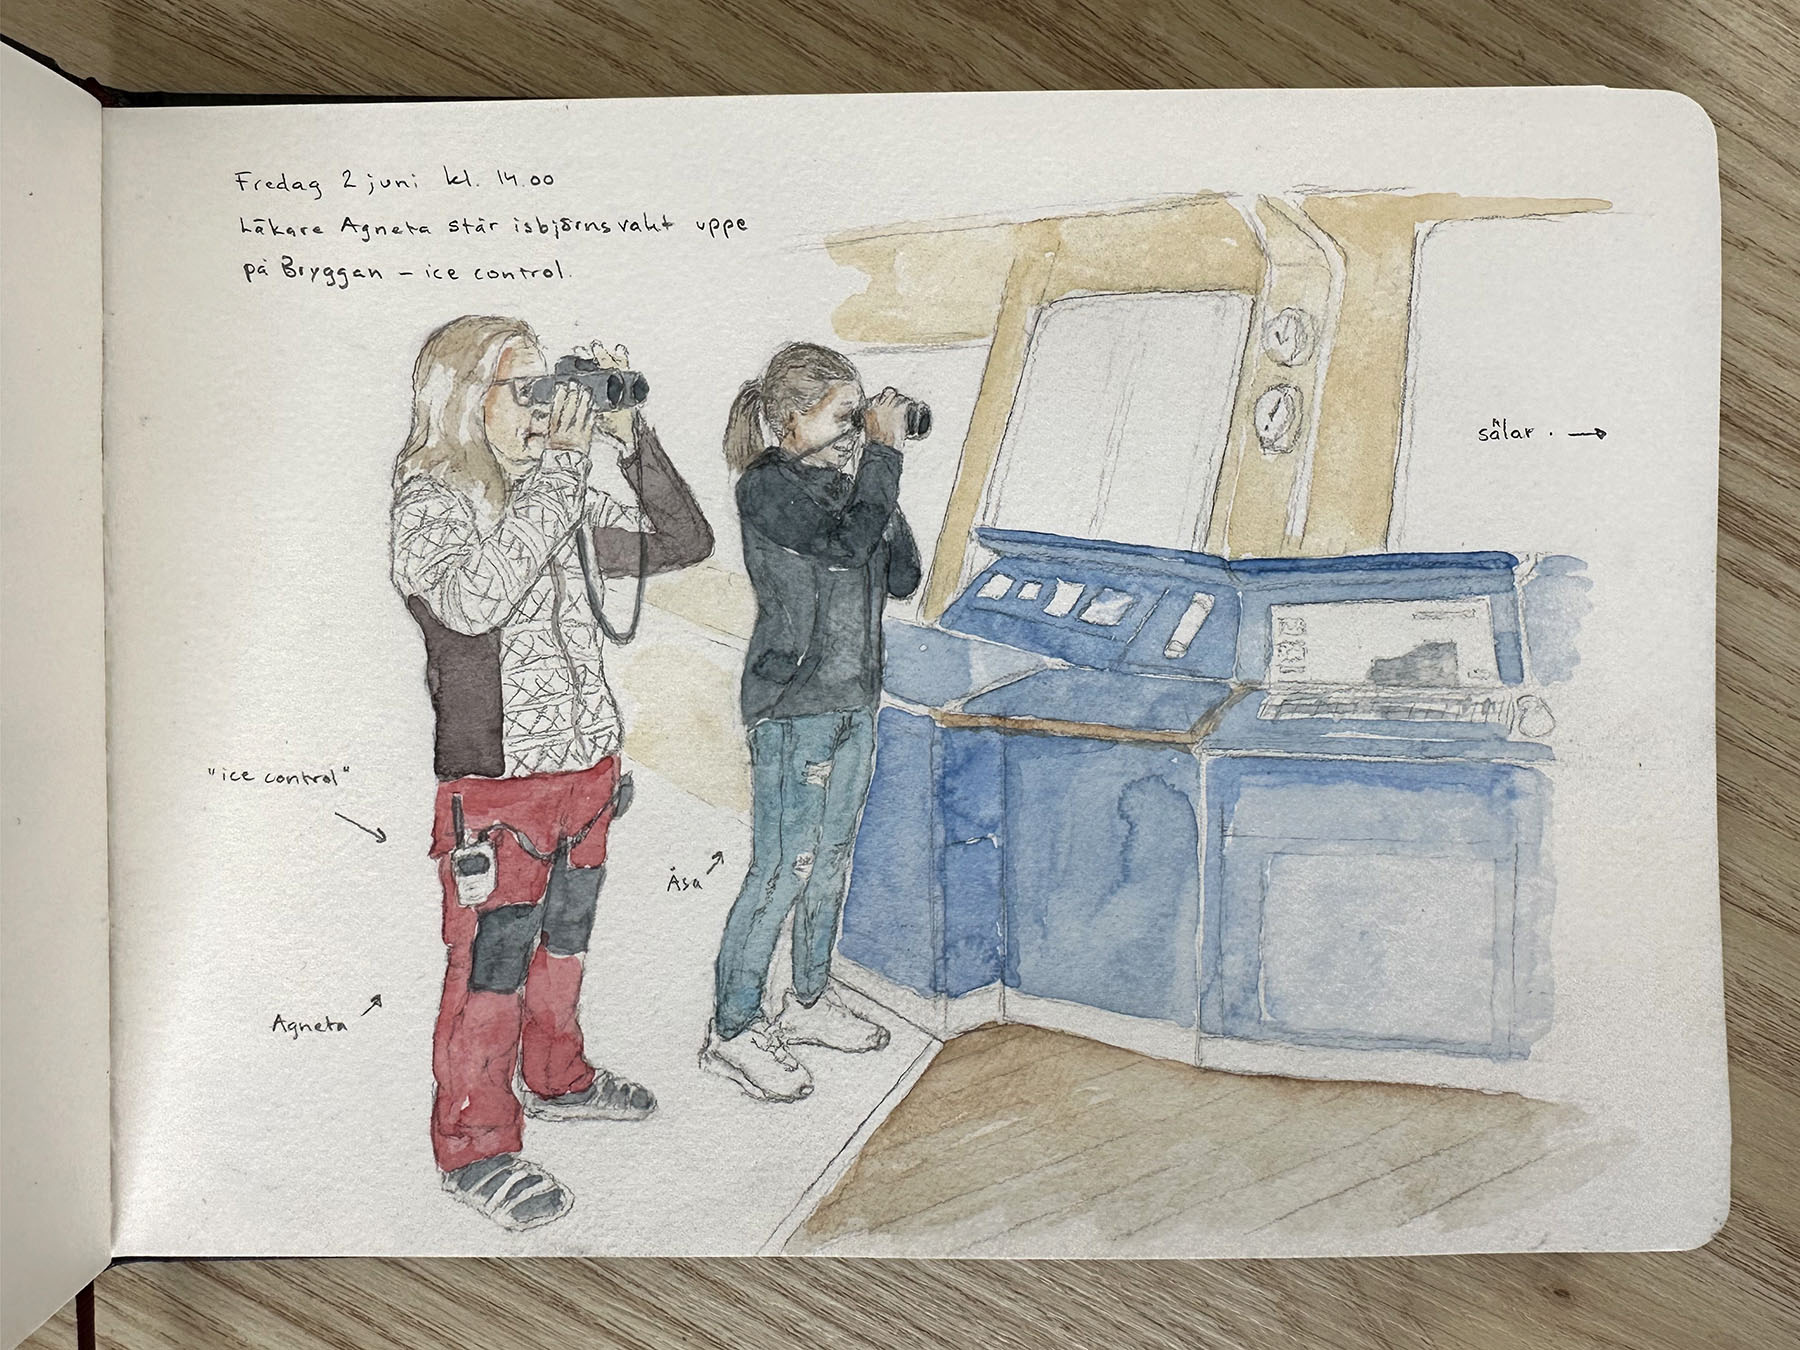 Fredag 2 juni kl. 14.00
Läkare Agneta står isbjörnsvakt uppe
på Bryggan – ice control.
sälar . →
"ice control"
Åsa
Agneta